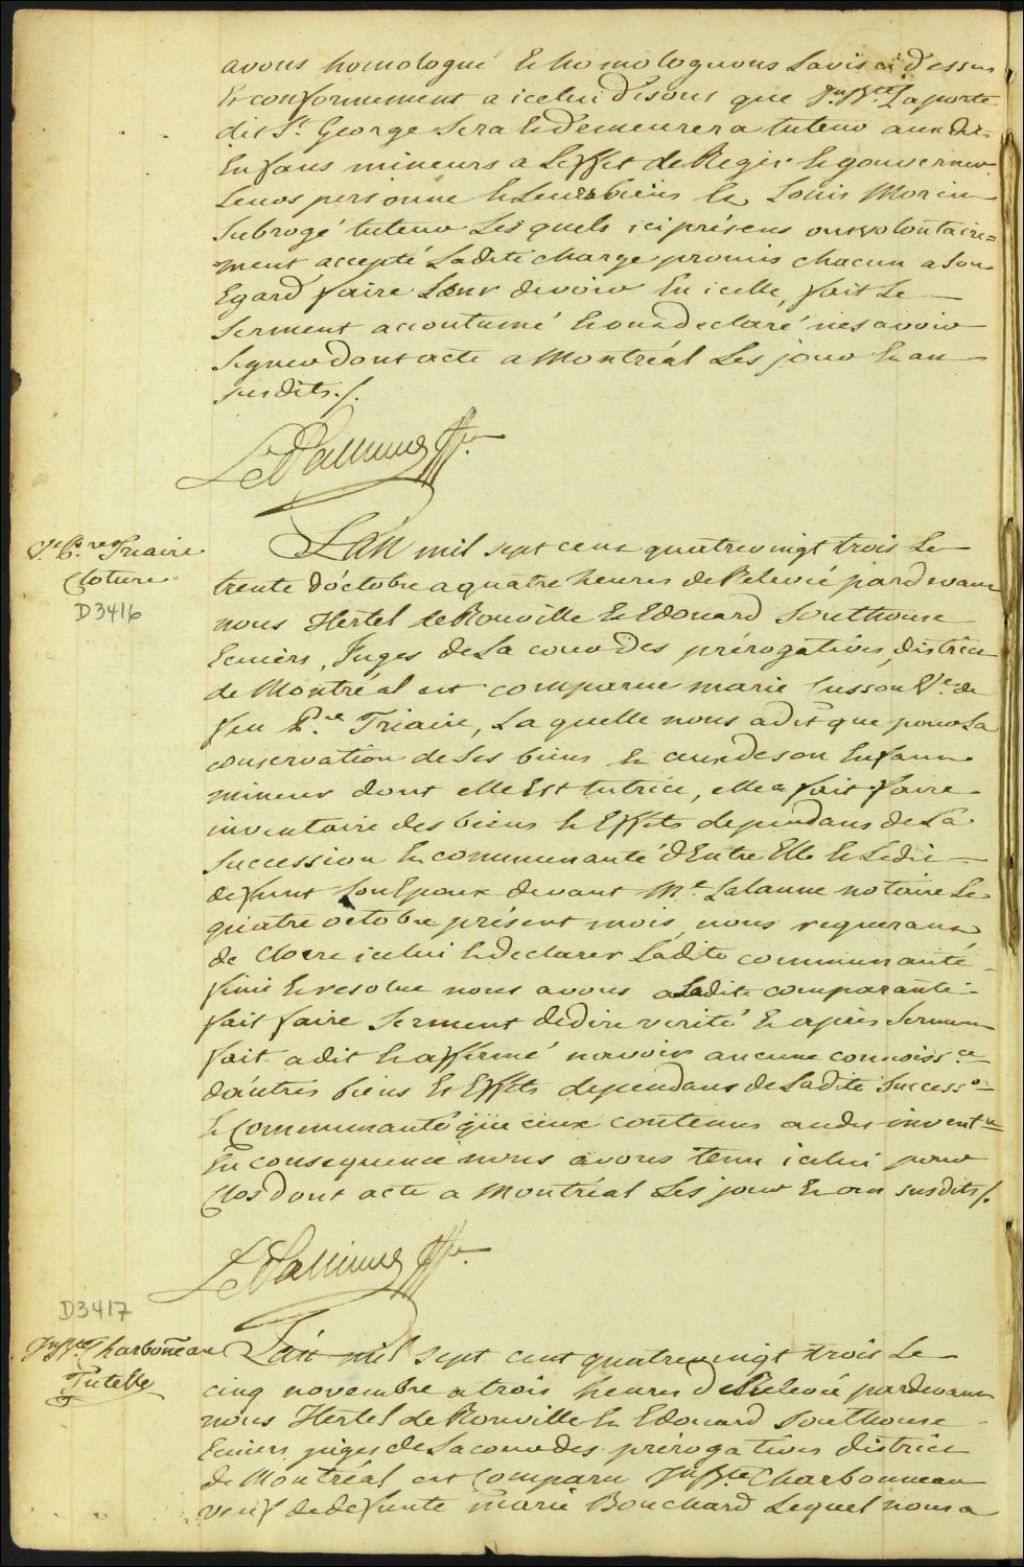 avons homologué & homologuons Lavis ci dessus
& conformement a icelui disons que Jn Bte Laporte
dit St. George Sera & demeurera tuteur aux dits
Enfans mineurs a L'effet de Regir & gouverner
Leurs personne & Leurs biens & Louis Morin
Subrogé tuteur Lesquels ici présens ont volontaire=
ment accepté Ladite charge promis chacun a Son
Egard faire Leur devoir En icelle, fait Le
Serment accoutumé & ont declaré ne savoir
Signer dont acte a Montréal Les jour & an
susdits ./.
Le Pallieur Gffr.
Ve. Pre. Triaire
Cloture
D3416
L'an mil sept cent quatrevingt trois Le
trente d'octobre a quatre heures de Relevée pardevant
nous Hertel de Rouville & Edouard Southouse
Ecuiers, Juges de La cour des prérogatives, district
de Montréal est comparue marie Lusson Ve. de
feu Pre. Triaire, Laquelle nous a dit que pour La
conservation de Ses biens & ceux de son Enfant
mineur dont elle Est tutrice, elle a fait faire
inventaire des biens & Effets dependans de La
Succession & communauté d'Entre Elle & Ledit
defunt Son Epoux devant Me. Lalanne notaire Le
quatre octobre présent mois, nous requerant
de Clorre icelui & declarer Ladite communauté
finie & resolue nous avons a Ladite comparante
fait faire Serment de dire verité & après Serment
fait a dit & affirmé n'avoir aucune connoissce
d'autres biens & Effets dependans de Ladite Successon
& Communauté que ceux contenus audit invent.re
En consequence nous avons tenu icelui pour
Clos dont acte a Montréal Les jour & an susdits ./.
Le Pallieur Gffr.
D3417
Jn Bte Charboneau
Tutelle
L'an mil sept cent quatrevingt trois Le
cinq novembre a trois heures de Relevée pardevant
nous Hertel de Rouville & Edouard Southouse
Ecuiers juges de La cour des prérogatives district
de Montréal est Comparu Jn Bte Charbonneau
veuf de defunte marie Bouchard Lequel nous a